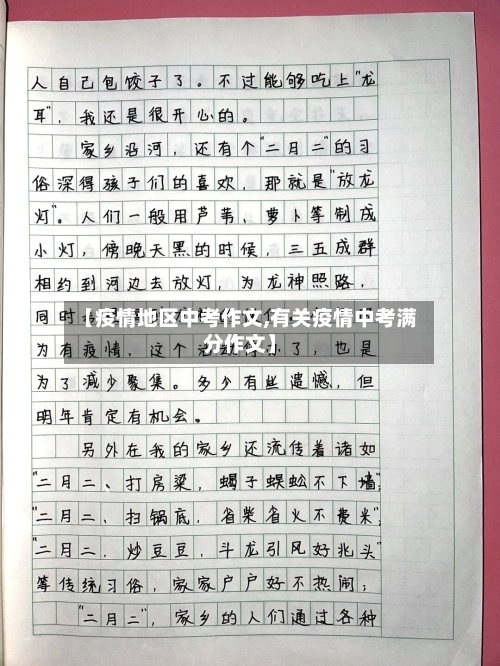 人自己包饺子了。不过能够吃上"龙
耳",我还是很开心的。
家乡沿河,还有个"二月二"的习
俗深得孩子们的喜欢,那就是"放龙
灯"。人们一般用芦苇、萝卜等制成
小灯,傍晚天黑的时候,三五成群
相约到河边去放灯,为龙神照路,
同时
【疫情地区中考作文,有关疫情中考满
分作文】
为有疫情,这个活动取小了,也是
为了减少聚集。多少有些遗憾,但
明年肯定有机会。
另外在我的家乡还流传着诸如
"二月二、打房梁,蝎子蜈蚣不下墙";
"二月二、扫锅底,省柴省火不费米";
"二月二,炒豆豆,斗龙引风好兆头"
等传统习俗,家家户户好不热闹;
"二月二",家乡的人们通过各种